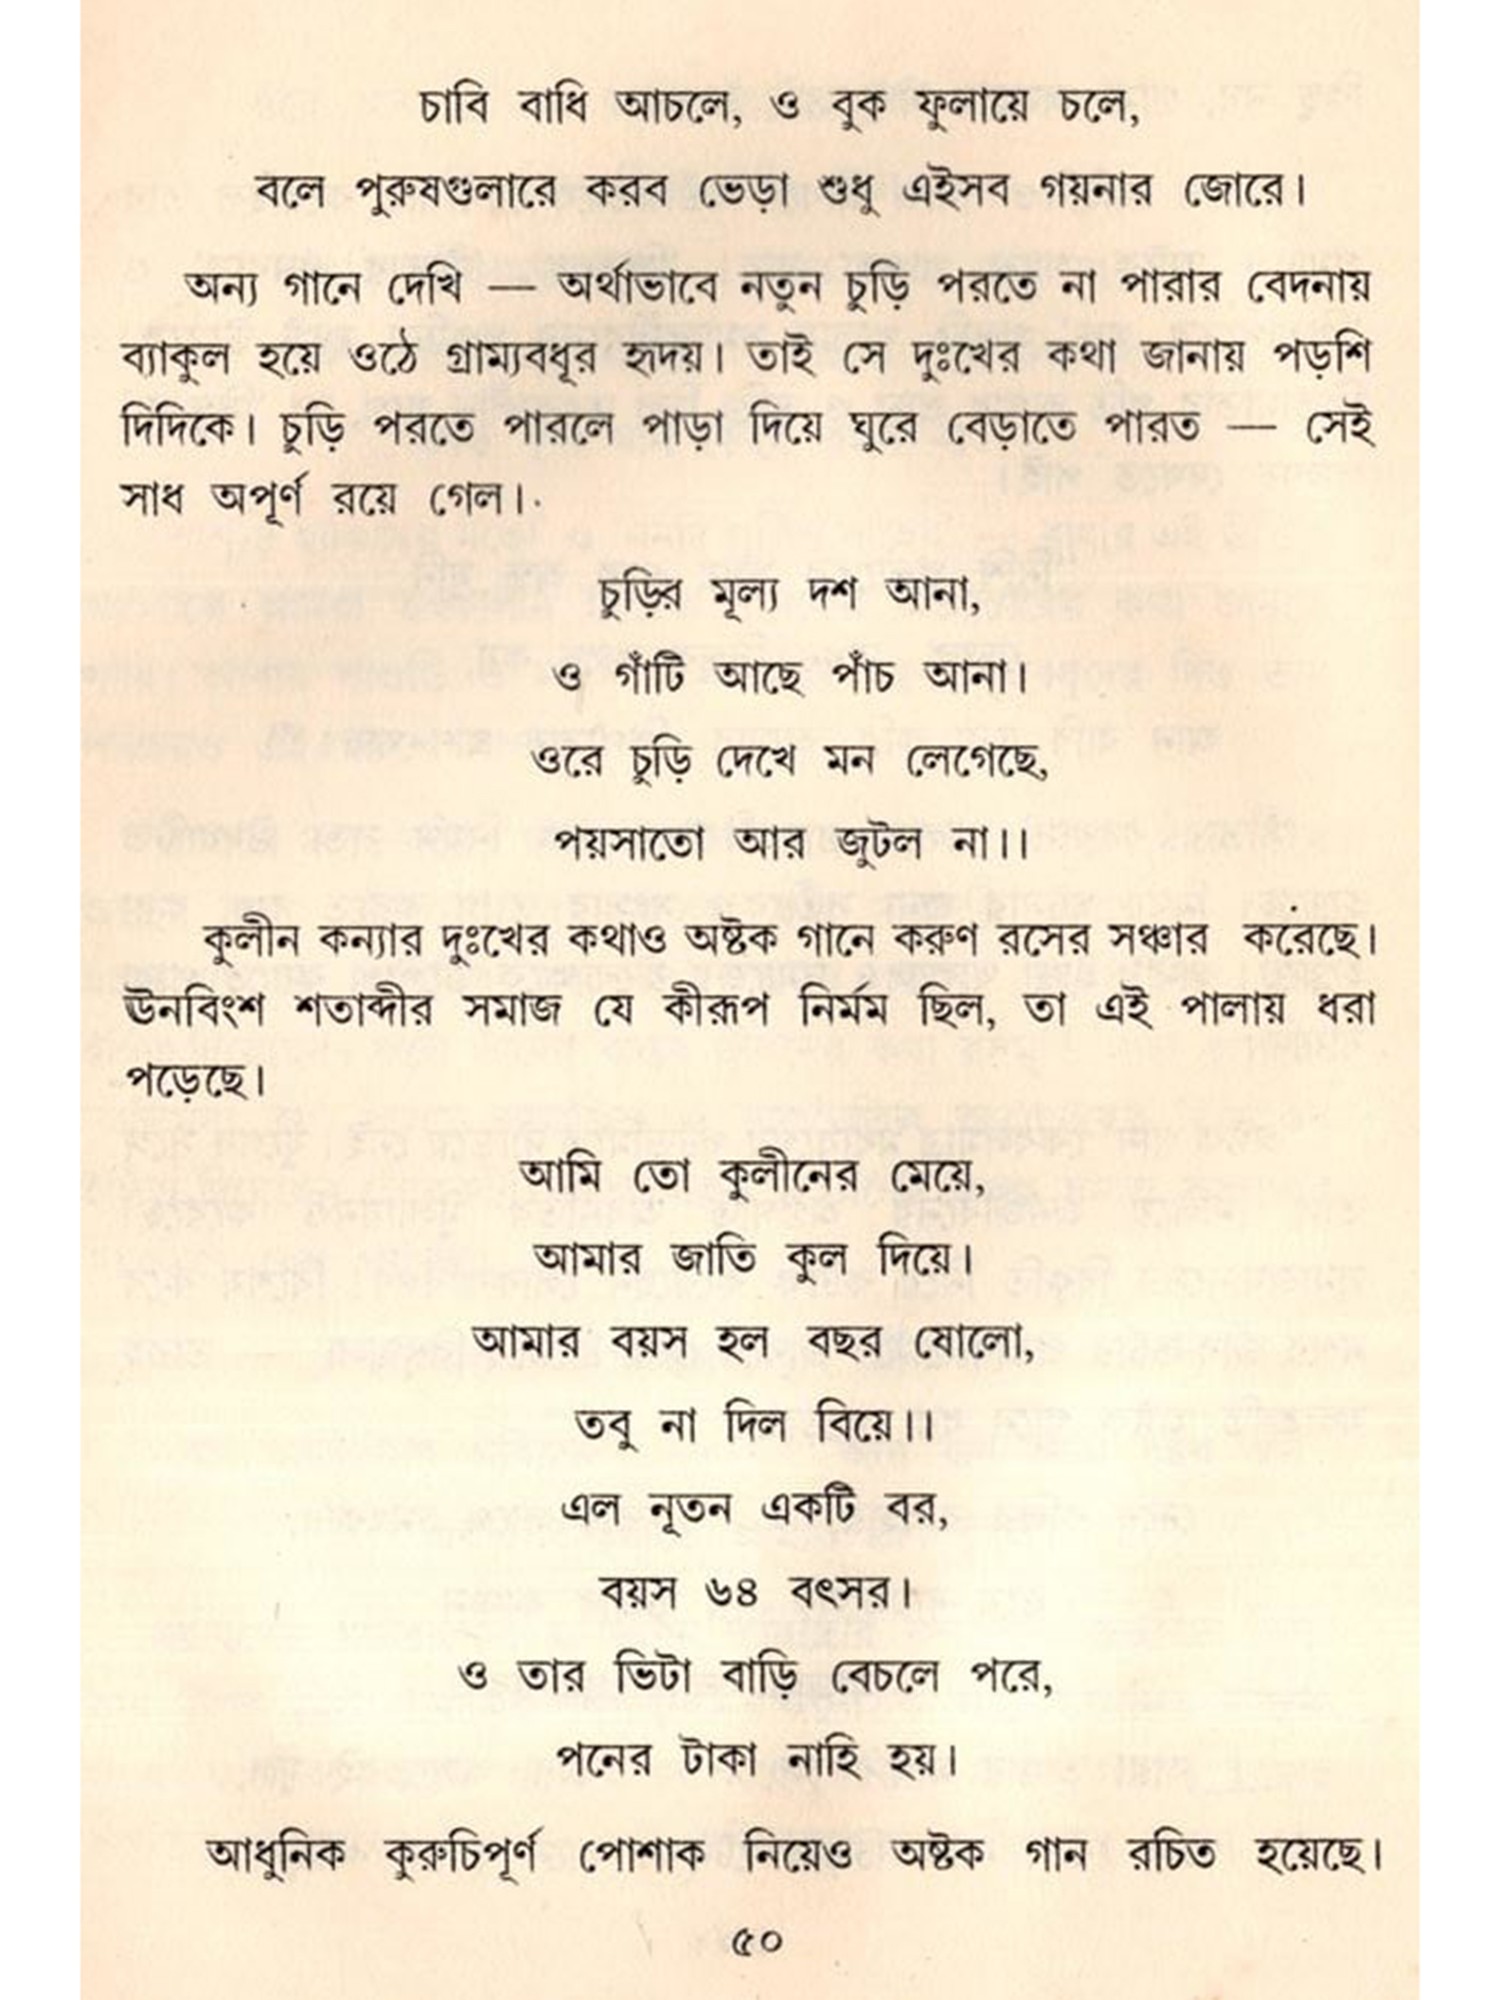 চাবি বাধি আচলে, ও বুক ফুলায়ে চলে,
বলে পুরুষগুলারে করব ভেড়া শুধু এইসব গয়নার জোরে।
অন্য গানে দেখি — অর্থাভাবে নতুন চুড়ি পরতে না পারার বেদনায়
ব্যাকুল হয়ে ওঠে গ্রাম্যবধূর হৃদয়। তাই সে দুঃখের কথা জানায় পড়শি
দিদিকে। চুড়ি পরতে পারলে পাড়া দিয়ে ঘুরে বেড়াতে পারত — সেই
সাধ অপূর্ণ রয়ে গেল।
চুড়ির মূল্য দশ আনা,
ও গাঁটি আছে পাঁচ আনা।
ওরে চুড়ি দেখে মন লেগেছে,
পয়সাতো আর জুটল না।।
কুলীন কন্যার দুঃখের কথাও অষ্টক গানে করুণ রসের সঞ্চার করেছে।
ঊনবিংশ শতাব্দীর সমাজ যে কীরূপ নির্মম ছিল, তা এই পালায় ধরা
পড়েছে।
আমি তো কুলীনের মেয়ে,
আমার জাতি কুল দিয়ে।
আমার বয়স হল বছর ষোলো,
তবু না দিল বিয়ে।।
এল নূতন একটি বর,
বয়স ৬৪ বৎসর।
ও তার ভিটা বাড়ি বেচলে পরে,
পনের টাকা নাহি হয়।
আধুনিক কুরুচিপূর্ণ পোশাক নিয়েও অষ্টক গান রচিত হয়েছে।
৫০